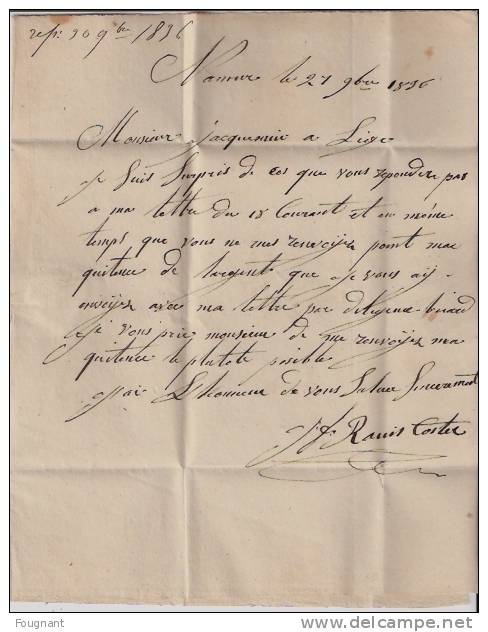 rep: 30 9bre 1836
Namur le 27 9bre 1836
Monsieur jacquemin a Liege
Je Suis Surpris de ces que vous repondere pas
a ma lettre du 18 Courant et en même
temps que vous ne mes renvoijez point mae
quitence de l'argent que Je vous aij
envoijez avec ma lettre par diligence
Je vous prie monsieur de me renvoijez ma
quitence le plutote posible
J'ai L'honneur de vous Saluer Sincerement
Ranis Coster
Fougnant
delcampe.net